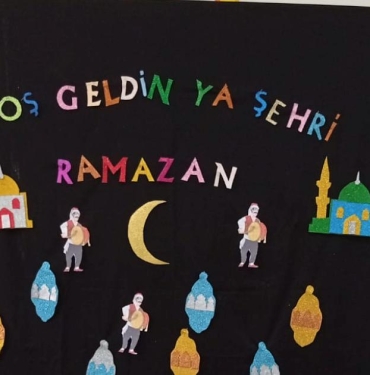 OŞ GELDİN YA ŞEHRİ
RAMAZAN